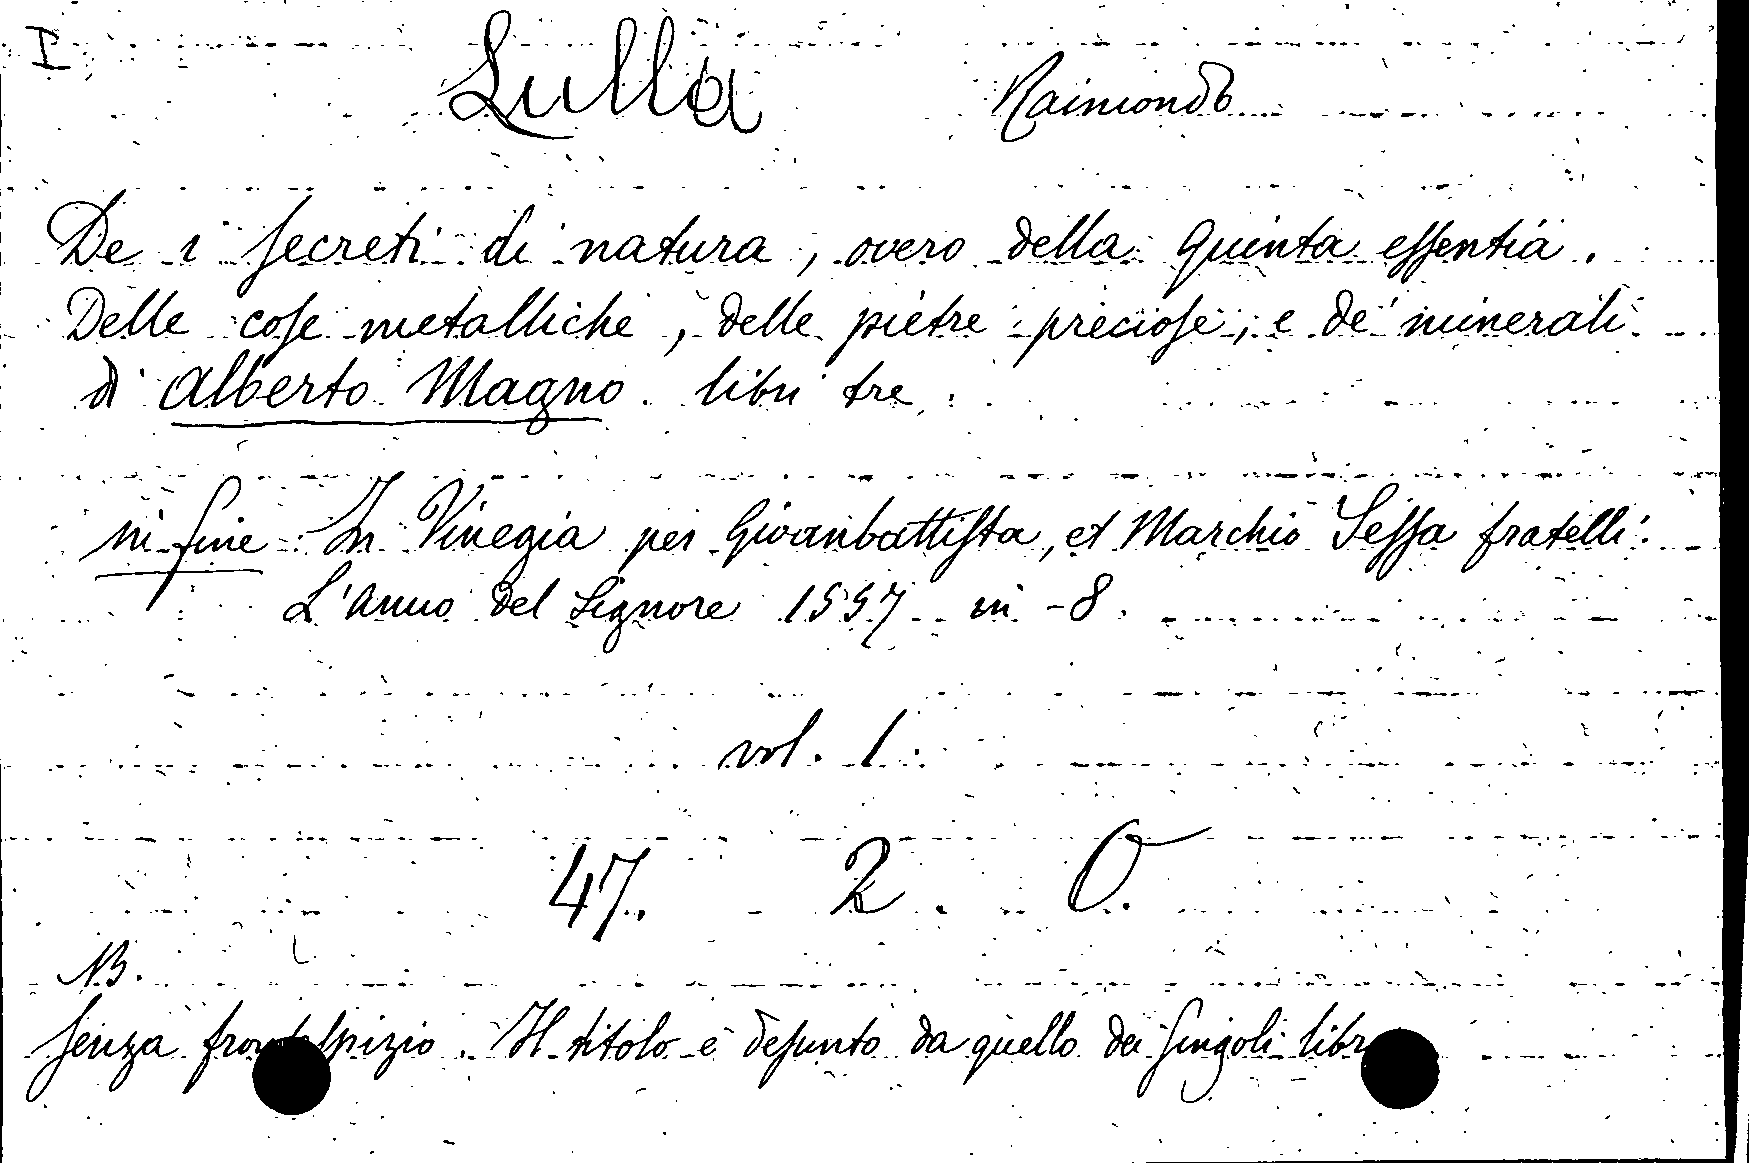 I Lulla Raimondo
De i secreti di natura, overo della quinta essentia.
Delle cose metalliche, delle pietre preciose, e de' minerali
di Alberto Magno. libri tre.
in fine In Vinegia per Giovanbattista, et Marchio Sessa fratelli.
L'anno del Signore 1557 in-8.
vol. 1.
47. 2. O.
NB.
Senza frontespizio. Il titolo è desunto da quello dei singoli libri